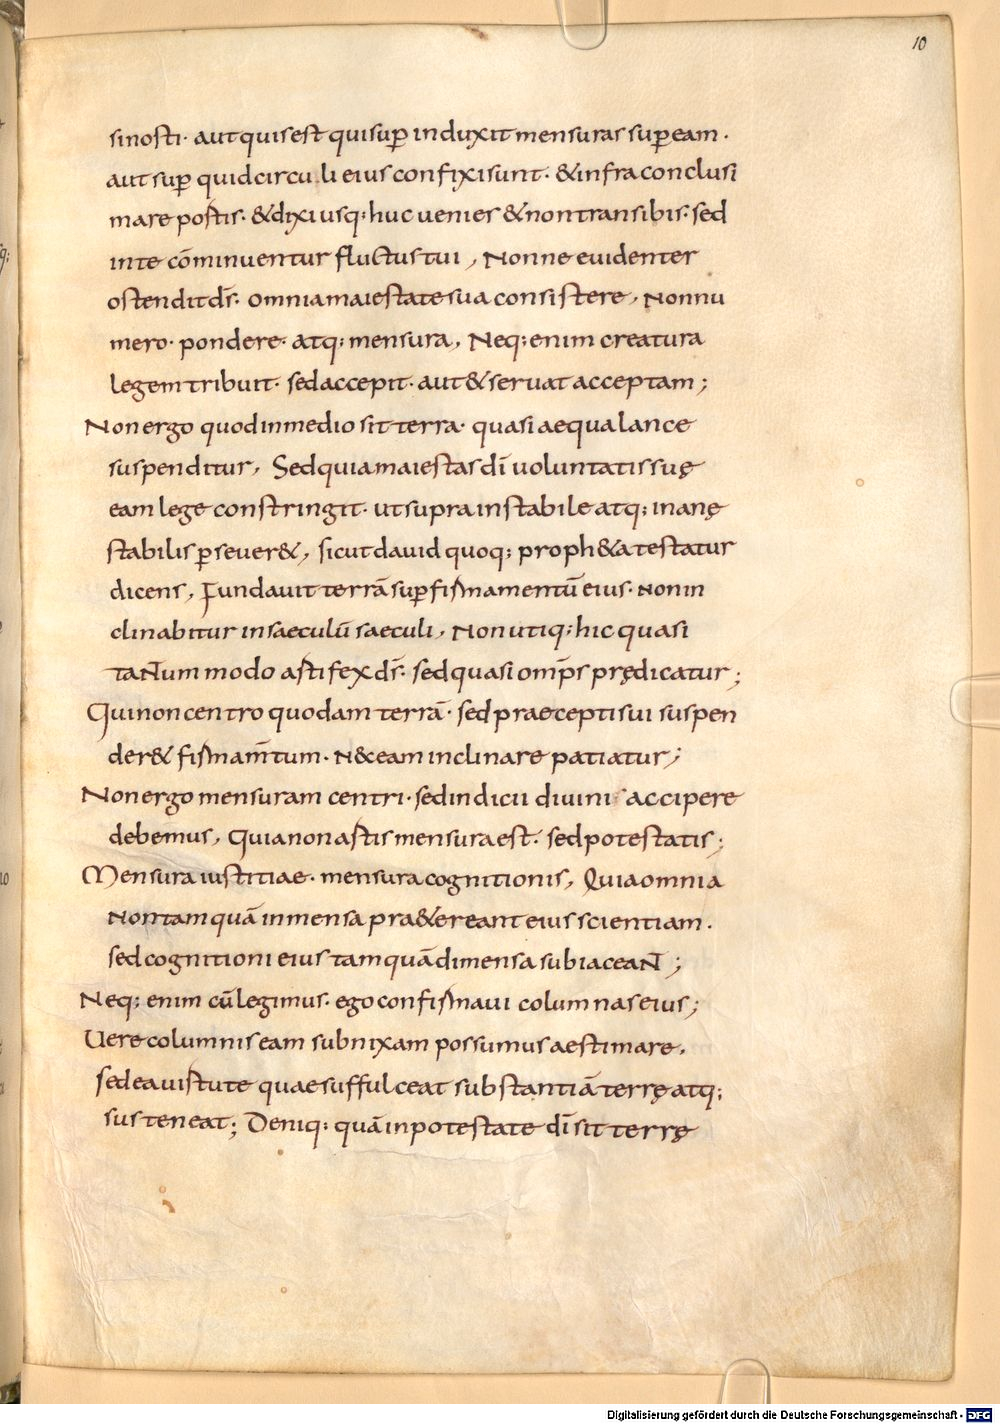 10
sinosti· aut quis est qui sup̱ induxit mensuras sup̱ eam·
aut sup̱ quid circuli eius confixi sunt· & infra conclusi
mare postis· & dixi usq; huc uenies & non transibis· sed
in te cōminuentur fluctus tui, Nonne euidenter
ostendit ds̄· omnia maiestate sua consistere, Non nu
mero· pondere· atq; mensura, Neq; enim creatura
legem tribuit· sed accepit· aut & seruat acceptam;
Non ergo quod in medio sit terra· quasi aequa lance
suspenditur, Sed quia maiestas dī uoluntatis suę
eam lege constringit· ut supra instabile atq; inane
stabilis p̱seuer&, sicut dauid quoq; proph&a testatur
dicens, Fundauit terrā sup̱ firmamentū eius· Non in
clinabitur in saeculū saeculi, Non utiq; hic quasi
taNtum modo artifex ds̄· sed quasi omp̄s prędicatur;
Qui non centro quodam terrā· sed praecepti sui suspen
der& firmam̄tum· N&c eam inclinare patiatur;
Non ergo mensuram centri· sed indicii diuini accipere
debemus, Quia non artis mensura est· sed potestatis;
Mensura iustitiae· mensura cognitionis, Quia omnia
Non tamquā inmensa pra&ereant eius scientiam·
sed cognitioni eius tamquā dimensa subiaceaNt;
Neq; enim cū legimus· ego confirmaui columnas eius;
Uere columnis eam subnixam possumus aestimare,
sed ea uirtute quae suffulceat substantiā terrę atq;
susteneat; Deniq; quā in potestate dī sit terrę
Digitalisierung gefördert durch die Deutsche Forschungsgemeinschaft - DFG